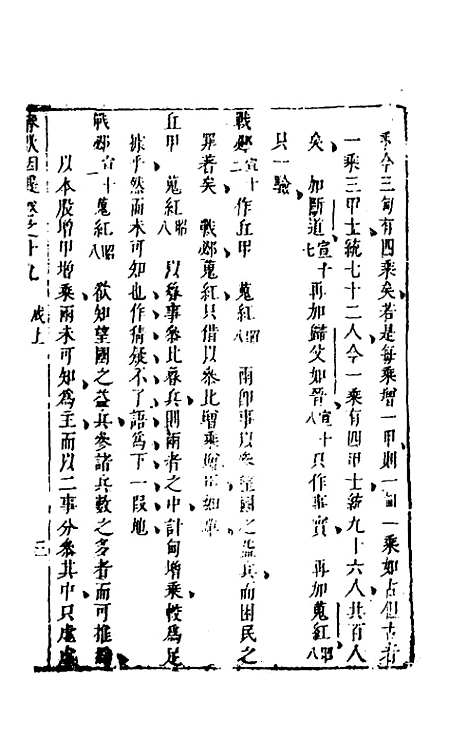 乘今三甸有四乘矣若是每乘增一甲則一甸一乘如占但古者
一乘三甲士統七十二人今一乘有四甲士統九十六人共百人
矣 加斷道宣十七再加歸父如晉宣十八只作事實 再加蒐紅昭八
只一驗
戰邲宣十二作丘甲 蒐紅昭八 兩卽事以參望國之益兵而困民之
罪著矣 戰邲蒐紅只借以參此增乘增
丘甲 蒐紅昭八 以蒐事參比蒐兵則兩者之中計甸增乘較爲足
據乎然而未可知也作猜疑不了語爲下一段地
戰邲宣十二蒐紅昭八 欲知望國之益兵參諸兵數之多者而可推
以本股增甲增乘兩未可知爲主而以二事分參其中只虛虛
春秋因是卷之十九 成上 三